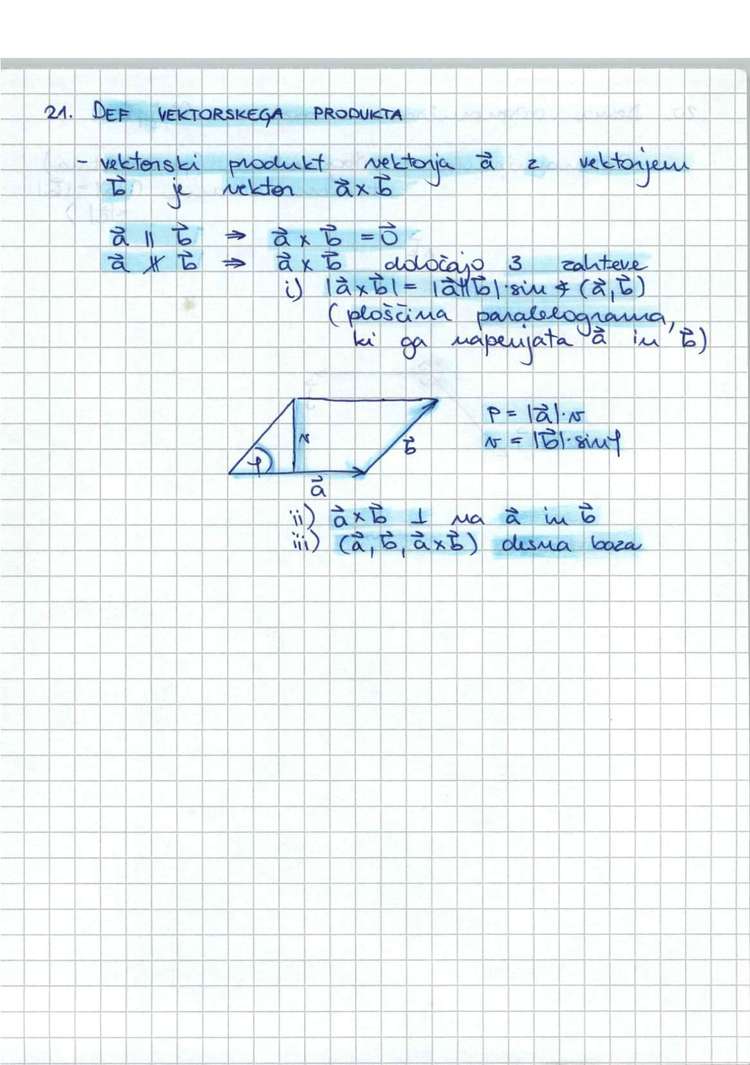 21. DEF VEKTORSKEGA PRODUKTA
- vektorski produkt vektorja a⃗ z vektorjem
b⃗ je vektor a⃗ × b⃗
a⃗ ∥ b⃗ ⇒ a⃗ × b⃗ = 0⃗
a⃗ ∦ b⃗ ⇒ a⃗ × b⃗ določajo 3 zahteve
i) |a⃗ × b⃗| = |a⃗||b⃗|·sin ∢ (a⃗, b⃗)
(ploščina paralelograma,
ki ga napenjata a⃗ in b⃗)
P = |a⃗|·v
v = |b⃗|·sinφ
v
φ
b⃗
a⃗
ii) a⃗ × b⃗ ⊥ na a⃗ in b⃗
iii) (a⃗, b⃗, a⃗ × b⃗) desna baza